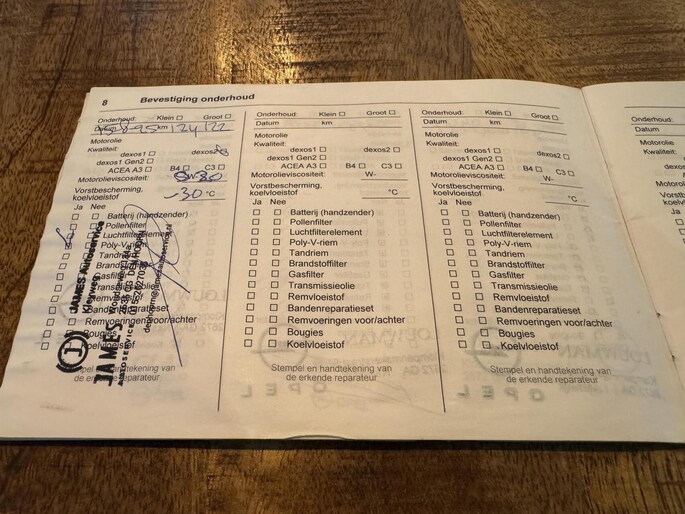 8 Bevestiging onderhoud
Onderhoud: Klein ☐ Groot ☐
Datum km
Motorolie
Kwaliteit:
dexos1 ☐ dexos2
dexos1 Gen2 ☐
ACEA A3 ☐ B4 ☐ C3 ☐
Motorolieviscositeit: 5W-30
Vorstbescherming,
koelvloeistof -30 °C
Ja Nee
☐ ☐ Batterij (handzender)
☐ Pollenfilter
☐ Luchtfilterelement
☐ Poly-V-riem
☐ Tandriem
☐ Brandstoffilter
☐ Gasfilter
☐ Transmissieolie
☐ Remvloeistof
☐ Bandenreparatieset
☐ Remvoeringen voor/achter
☐ Bougies
☐ Koelvloeistof
Stempel en handtekening van
de erkende reparateur
JAMES Autoservice
JAMES
AUTOSERVICE
Onderhoud: Klein ☐ Groot ☐
Datum km
Motorolie
Kwaliteit:
dexos1 ☐ dexos2 ☐
dexos1 Gen2 ☐
ACEA A3 ☐ B4 ☐ C3 ☐
Motorolieviscositeit: W-
Vorstbescherming,
koelvloeistof °C
Ja Nee
☐ ☐ Batterij (handzender)
☐ ☐ Pollenfilter
☐ ☐ Luchtfilterelement
☐ ☐ Poly-V-riem
☐ ☐ Tandriem
☐ ☐ Brandstoffilter
☐ ☐ Gasfilter
☐ ☐ Transmissieolie
☐ ☐ Remvloeistof
☐ ☐ Bandenreparatieset
☐ ☐ Remvoeringen voor/achter
☐ ☐ Bougies
☐ ☐ Koelvloeistof
Stempel en handtekening van
de erkende reparateur
Onderhoud: Klein ☐ Groot ☐
Datum km
Motorolie
Kwaliteit:
dexos1 ☐ dexos2 ☐
dexos1 Gen2 ☐
ACEA A3 ☐ B4 ☐ C3 ☐
Motorolieviscositeit: W-
Vorstbescherming,
koelvloeistof °C
Ja Nee
☐ ☐ Batterij (handzender)
☐ ☐ Pollenfilter
☐ ☐ Luchtfilterelement
☐ ☐ Poly-V-riem
☐ ☐ Tandriem
☐ ☐ Brandstoffilter
☐ ☐ Gasfilter
☐ ☐ Transmissieolie
☐ ☐ Remvloeistof
☐ ☐ Bandenreparatieset
☐ ☐ Remvoeringen voor/achter
☐ ☐ Bougies
☐ ☐ Koelvloeistof
Stempel en handtekening van
de erkende reparateur
Onderhoud:
Datum
Motorolie
Kwaliteit: